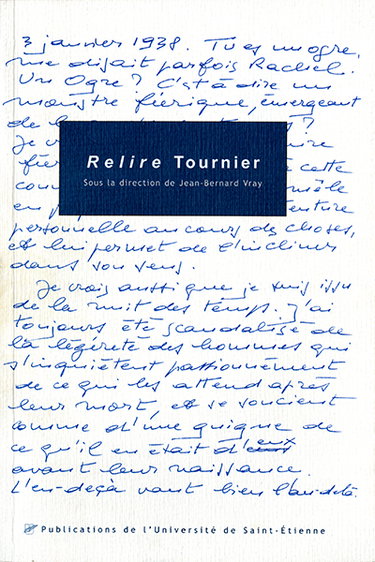 3 janvier 1938. Tu es un ogre,
me disait parfois Rachel.
Un Ogre ? C'est à dire un
monstre féerique, émergeant
de la
Je
fée cette
con mêle
en p enture
personnelle au cours des choses,
et lui permet de l'incliner
dans son sens.
Relire Tournier
Sous la direction de Jean-Bernard Vray
Je crois aussi que je suis issu
de la nuit des temps. J'ai
toujours été scandalisé de
la légèreté des hommes qui
s'inquiètent passionnément
de ce qui les attend après
leur mort, et se soucient
comme d'une guigne de
ce qu'il en était d'eux
avant leur naissance.
L'en-deçà vaut bien l'au-delà.
Publications de l'Université de Saint-Étienne